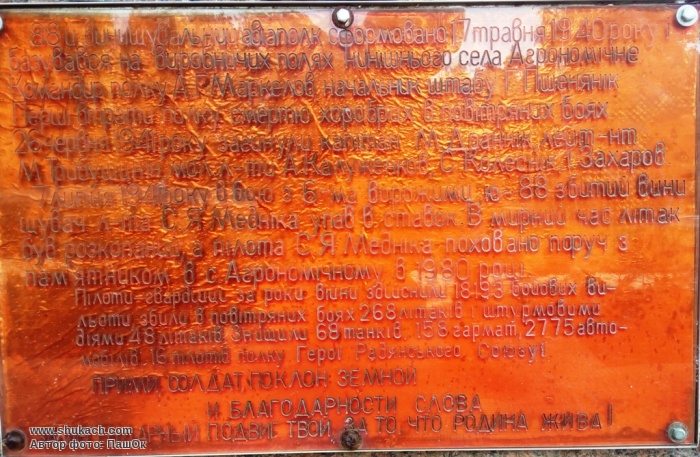 88 й винищувальний авіаполк сформовано 17 травня 1940 року і
базувався на виробничих полях нинішнього села Агрономічне
Командир полку А.Г. Маркелов начальник штабу Г. Пшеняник
Перші втрати полку смертю хоробрих в повітряних боях
26 червня 1941 року загинули капітан М. лейт-нт
М. мол. л-ти А. С. І. Захаров
7 липня 1941 року в бою з 6-ма ворожими ю- 88 збитий вини
щувач л-та С.Я Мєдніка упав в ставок. В мирний час літак
був розкопаний, а пілота С.Я Мєдніка поховано поруч з
пам'ятником в с Агрономічному в 1980 році
Пілоти-гвардійці за роки війни здійснили 18193 бойових ви-
льоти збили в повітряних боях 268 літаків і штурмовими
діями 48 літаків. Знищили 68 танків, 158 гармат, 2775 авто-
мобілів. 16 пілотів полку Герої Радянського Союзу!
ПРИМИ, СОЛДАТ, ПОКЛОН ЗЕМНОЙ
И БЛАГОДАРНОСТИ СЛОВА
ПОДВИГ ТВОЙ, ЗА ТО, ЧТО РОДИНА ЖИВА!
www.shukach.com
Автор фото: ПашОк